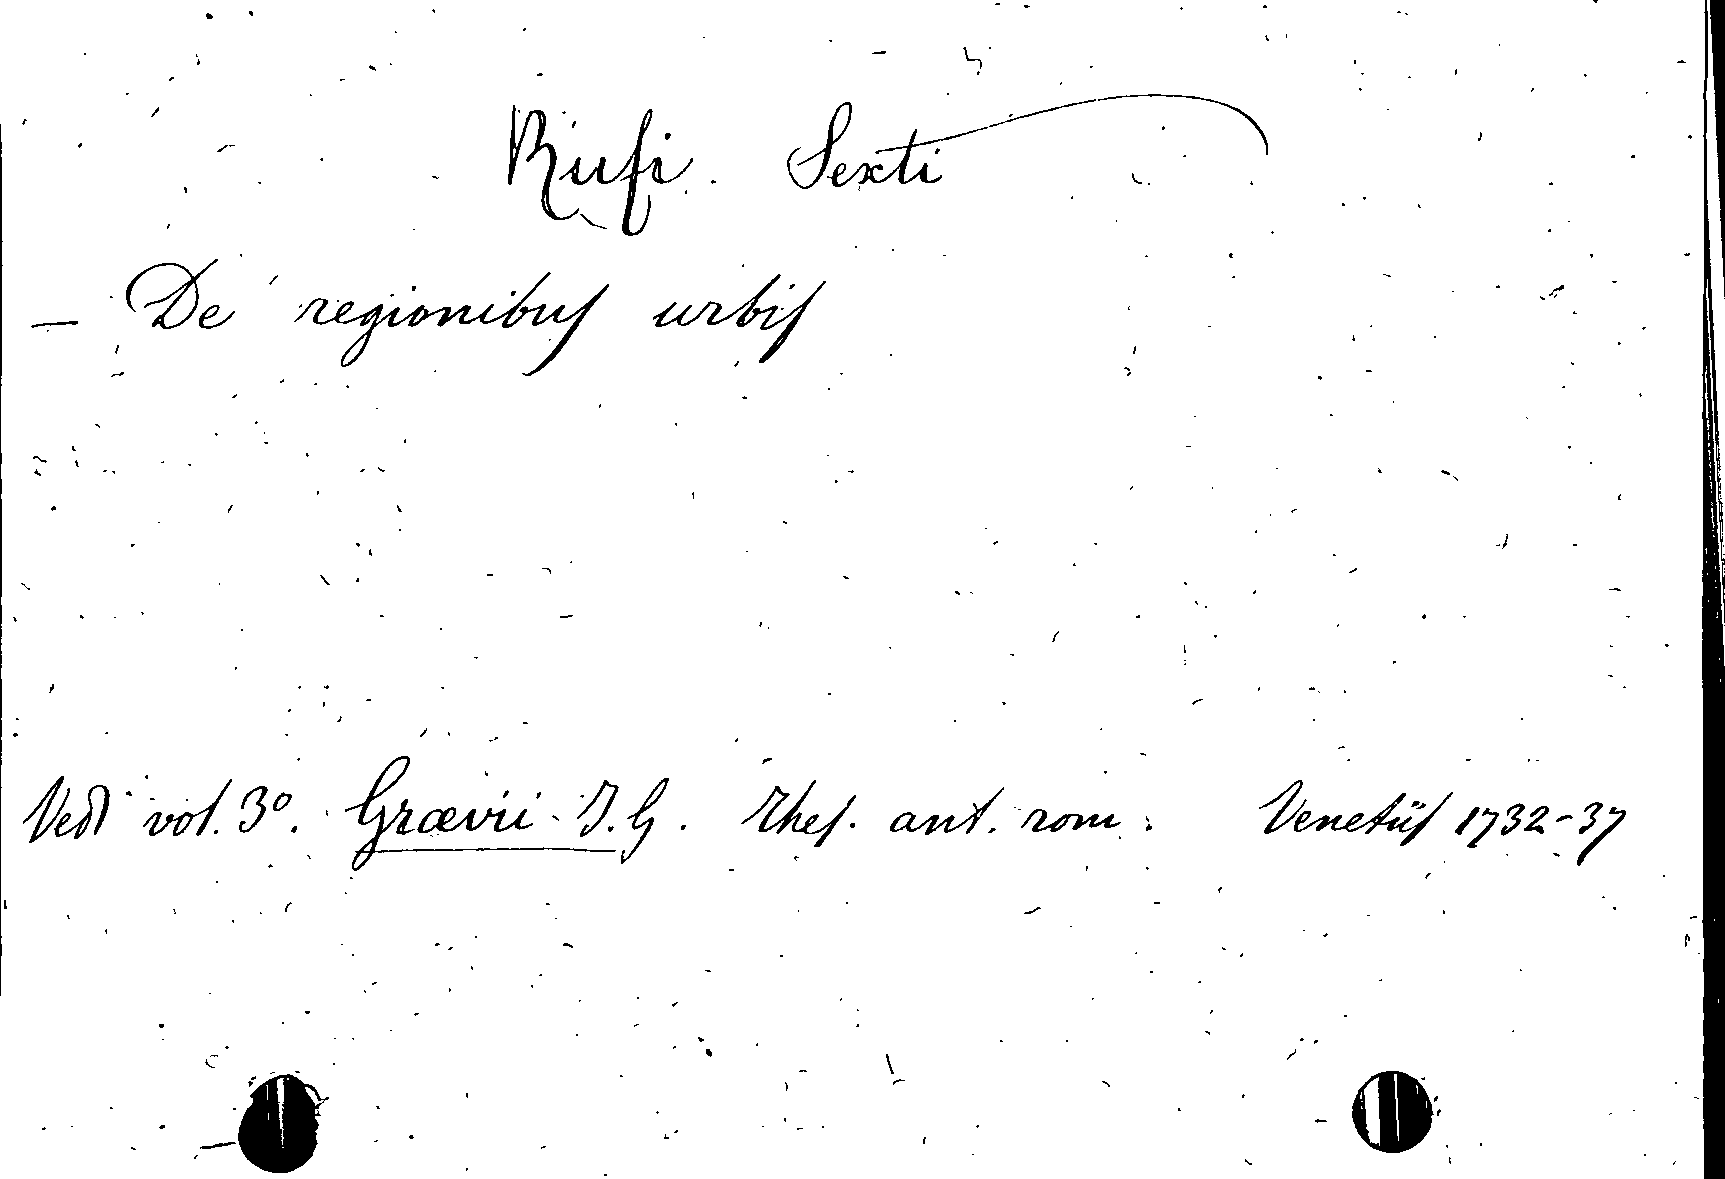 Rufi. Sexti
— De regionibus urbis
Vedi vol. 3º. Grævii J. G. Thes. ant. rom. Venetiis 1732-37